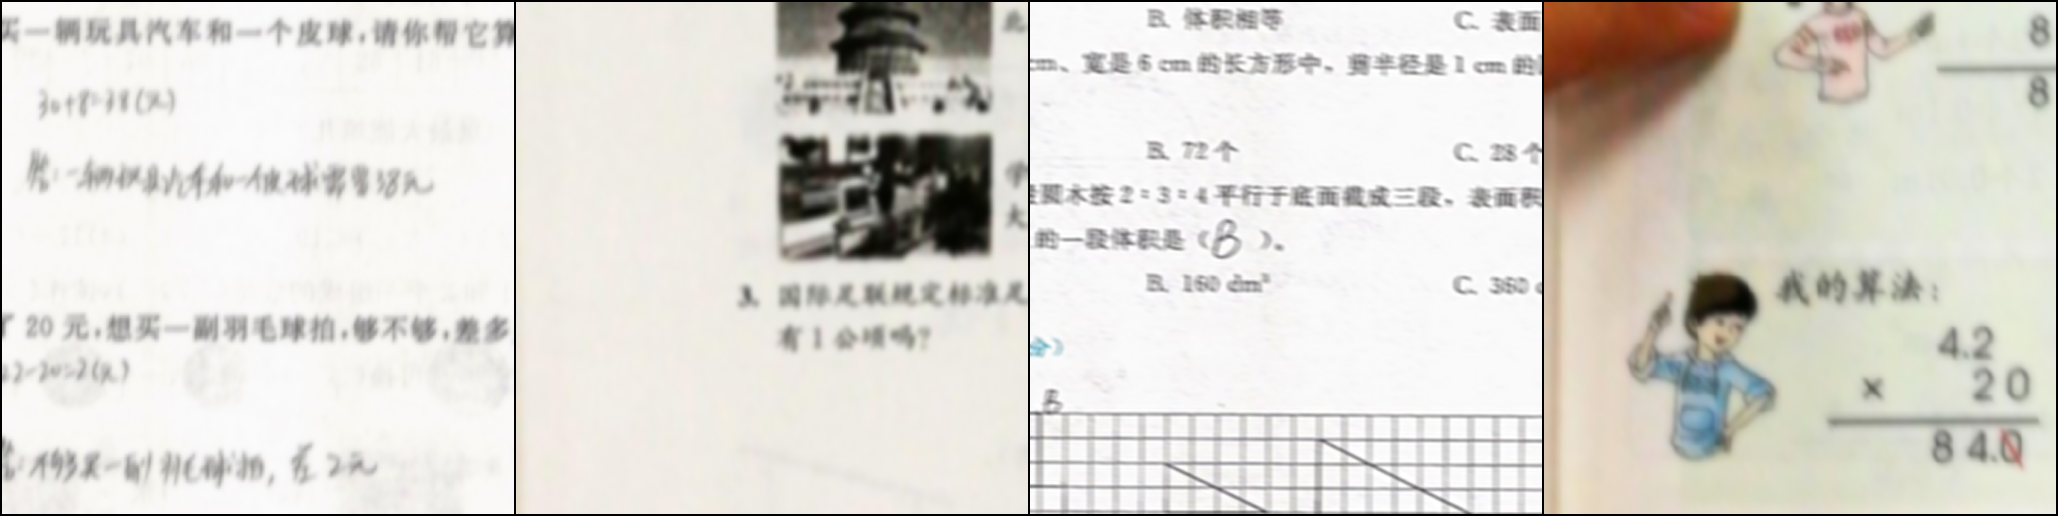 买一辆玩具汽车和一个皮球,请你帮它算
30+8=38(元)
答:一辆玩具汽车和一个皮球需要38元
了 20 元,想买一副羽毛球拍,够不够,差多
22-20=2(元)
答:不够买一副羽毛球拍,差2元
北
学
大
3. 国际足联规定标准足
有1公顷吗?
B. 体积相等 C. 表面
cm、宽是 6 cm 的长方形中,剪半径是 1 cm 的
B. 72 个 C. 28 个
圆木按 2:3:4 平行于底面截成三段,表面积
的一段体积是(B)。
B. 160 dm³ C. 360
分)
B
8
8
我的算法:
4.2
× 20
84.0